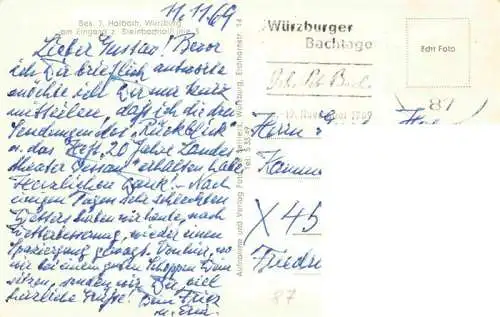 11.11.69
Bes. J. Haibach, Würzburg
am Eingang z. Steinbachtal Linie 3
Lieber Gustav! Bevor
ich Dir brieflich antworte
möchte ich Dir nur kurz
mitteilen, daß ich die drei
Sendungen des "Rückblick"
u. das Heft "20 Jahre Landes-
theater Dessau" erhalten habe.
Herzlichen Dank! - Nach
einigen Tagen sehr schlechten
Wetters haben wir heute, nach
Wetterbesserung, wieder einen
Spaziergang gewagt. Von hier, wo
wir bei einem guten Schoppen Wein
sitzen, senden wir Dir viel
herzliche Grüße!
Aufnahme und Verlag Foto Würzburg, 54
Tel. 5 35 49
Würzburger
Bachtage
1969
Echt Foto
87
Herrn
X 45
Friedr
87